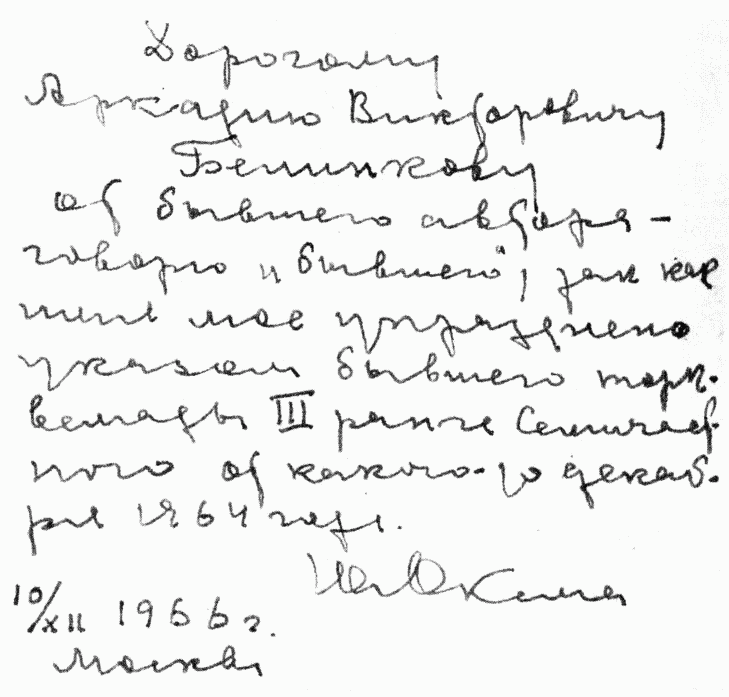 Дорогому
Аркадию Викторовичу
Белинкову
от бывшего автора —
говорю „бывшего", так как
имя мое упразднено
указом бывшего торк-
вемады III ранга Семичаст-
ного от какого-то декаб-
ря 1964 года.
10/XII 1966 г.
Москва